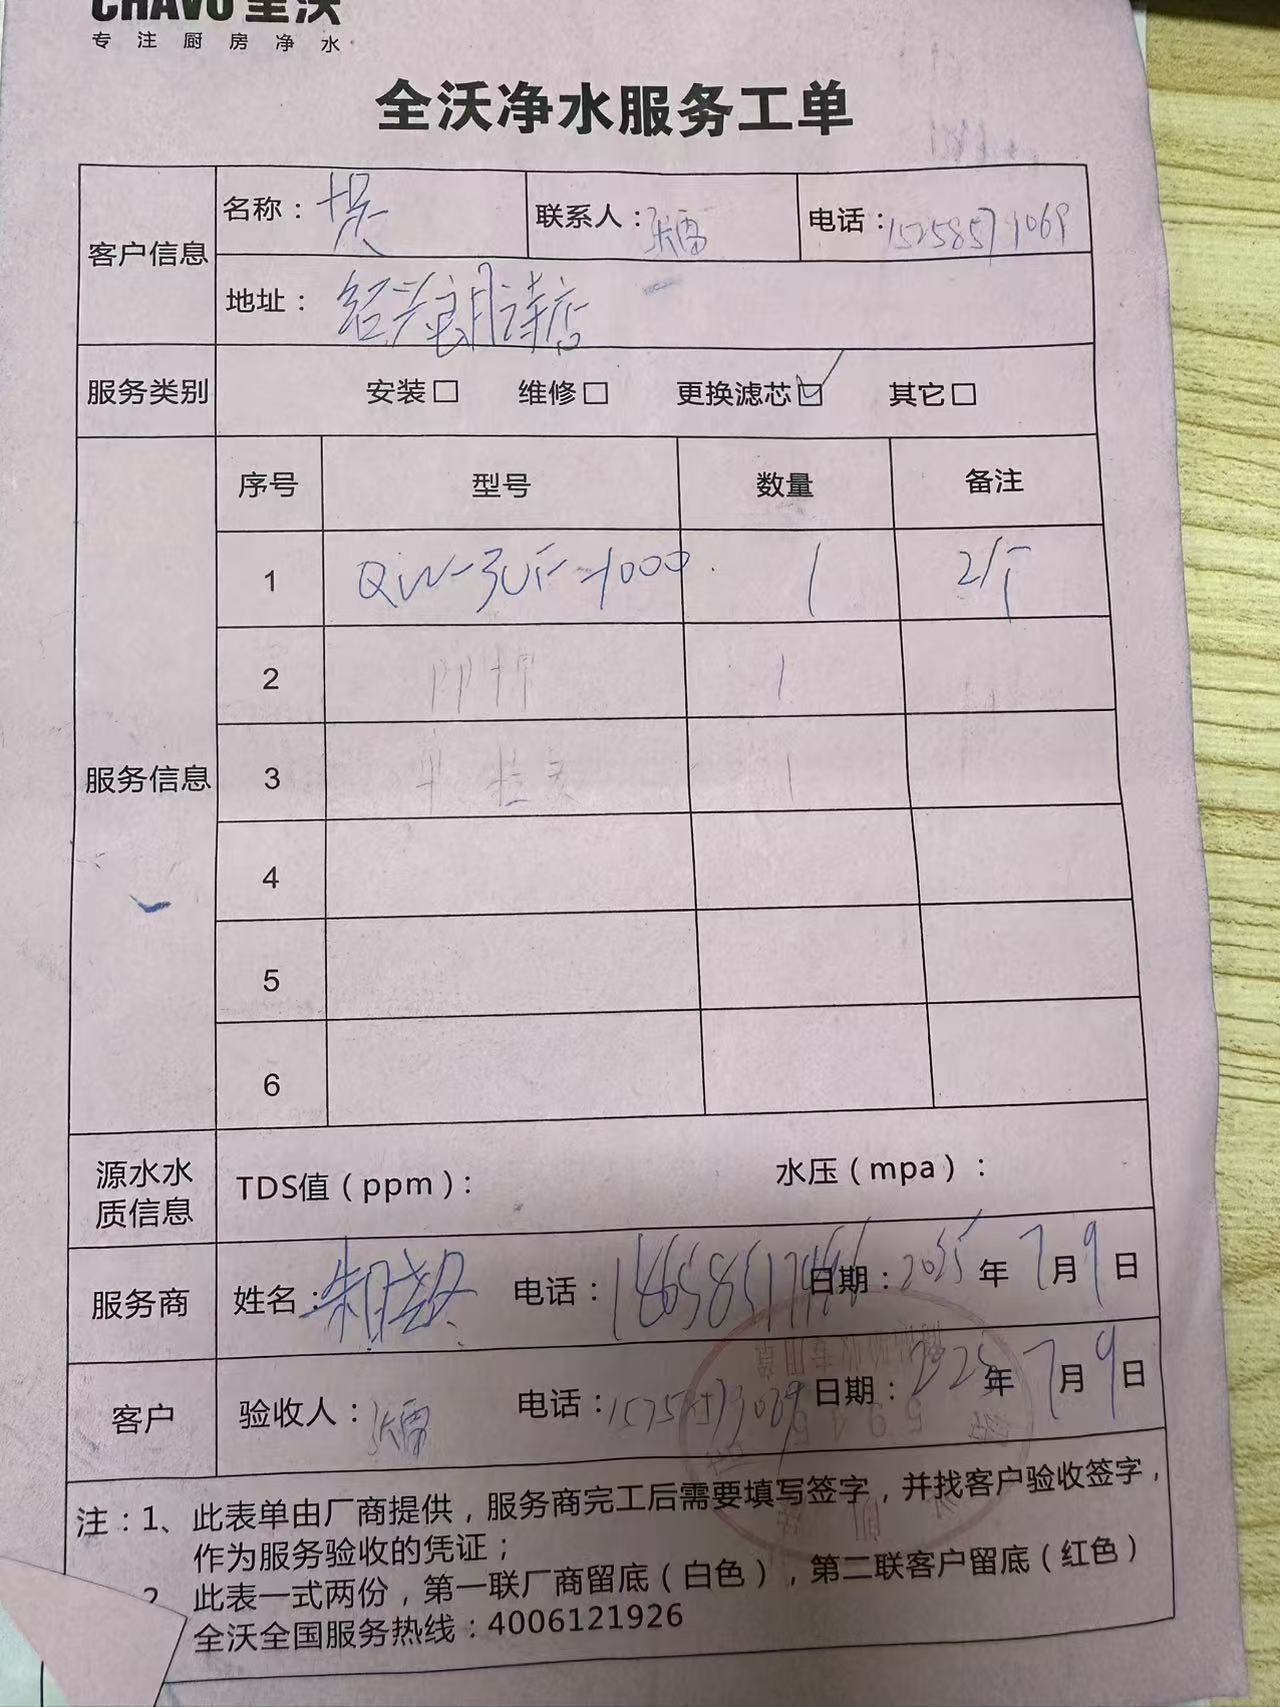 CHAVO 全沃
专注厨房净水
全沃净水服务工单
客户信息 名称： 联系人：张雷 电话：
地址：绍兴朗诗店
服务类别 安装□ 维修□ 更换滤芯☑ 其它□
服务信息
序号 型号 数量 备注
1 QW-3UF-1000 1 2个
2 1
3 1
4
5
6
源水水质信息 TDS值（ppm）： 水压（mpa）：
服务商 姓名： 电话： 日期：2025年7月9日
客户 验收人：张雷 电话： 日期：2025年7月9日
注：1、此表单由厂商提供，服务商完工后需要填写签字，并找客户验收签字，
作为服务验收的凭证；
2 此表一式两份，第一联厂商留底（白色），第二联客户留底（红色）
全沃全国服务热线：4006121926